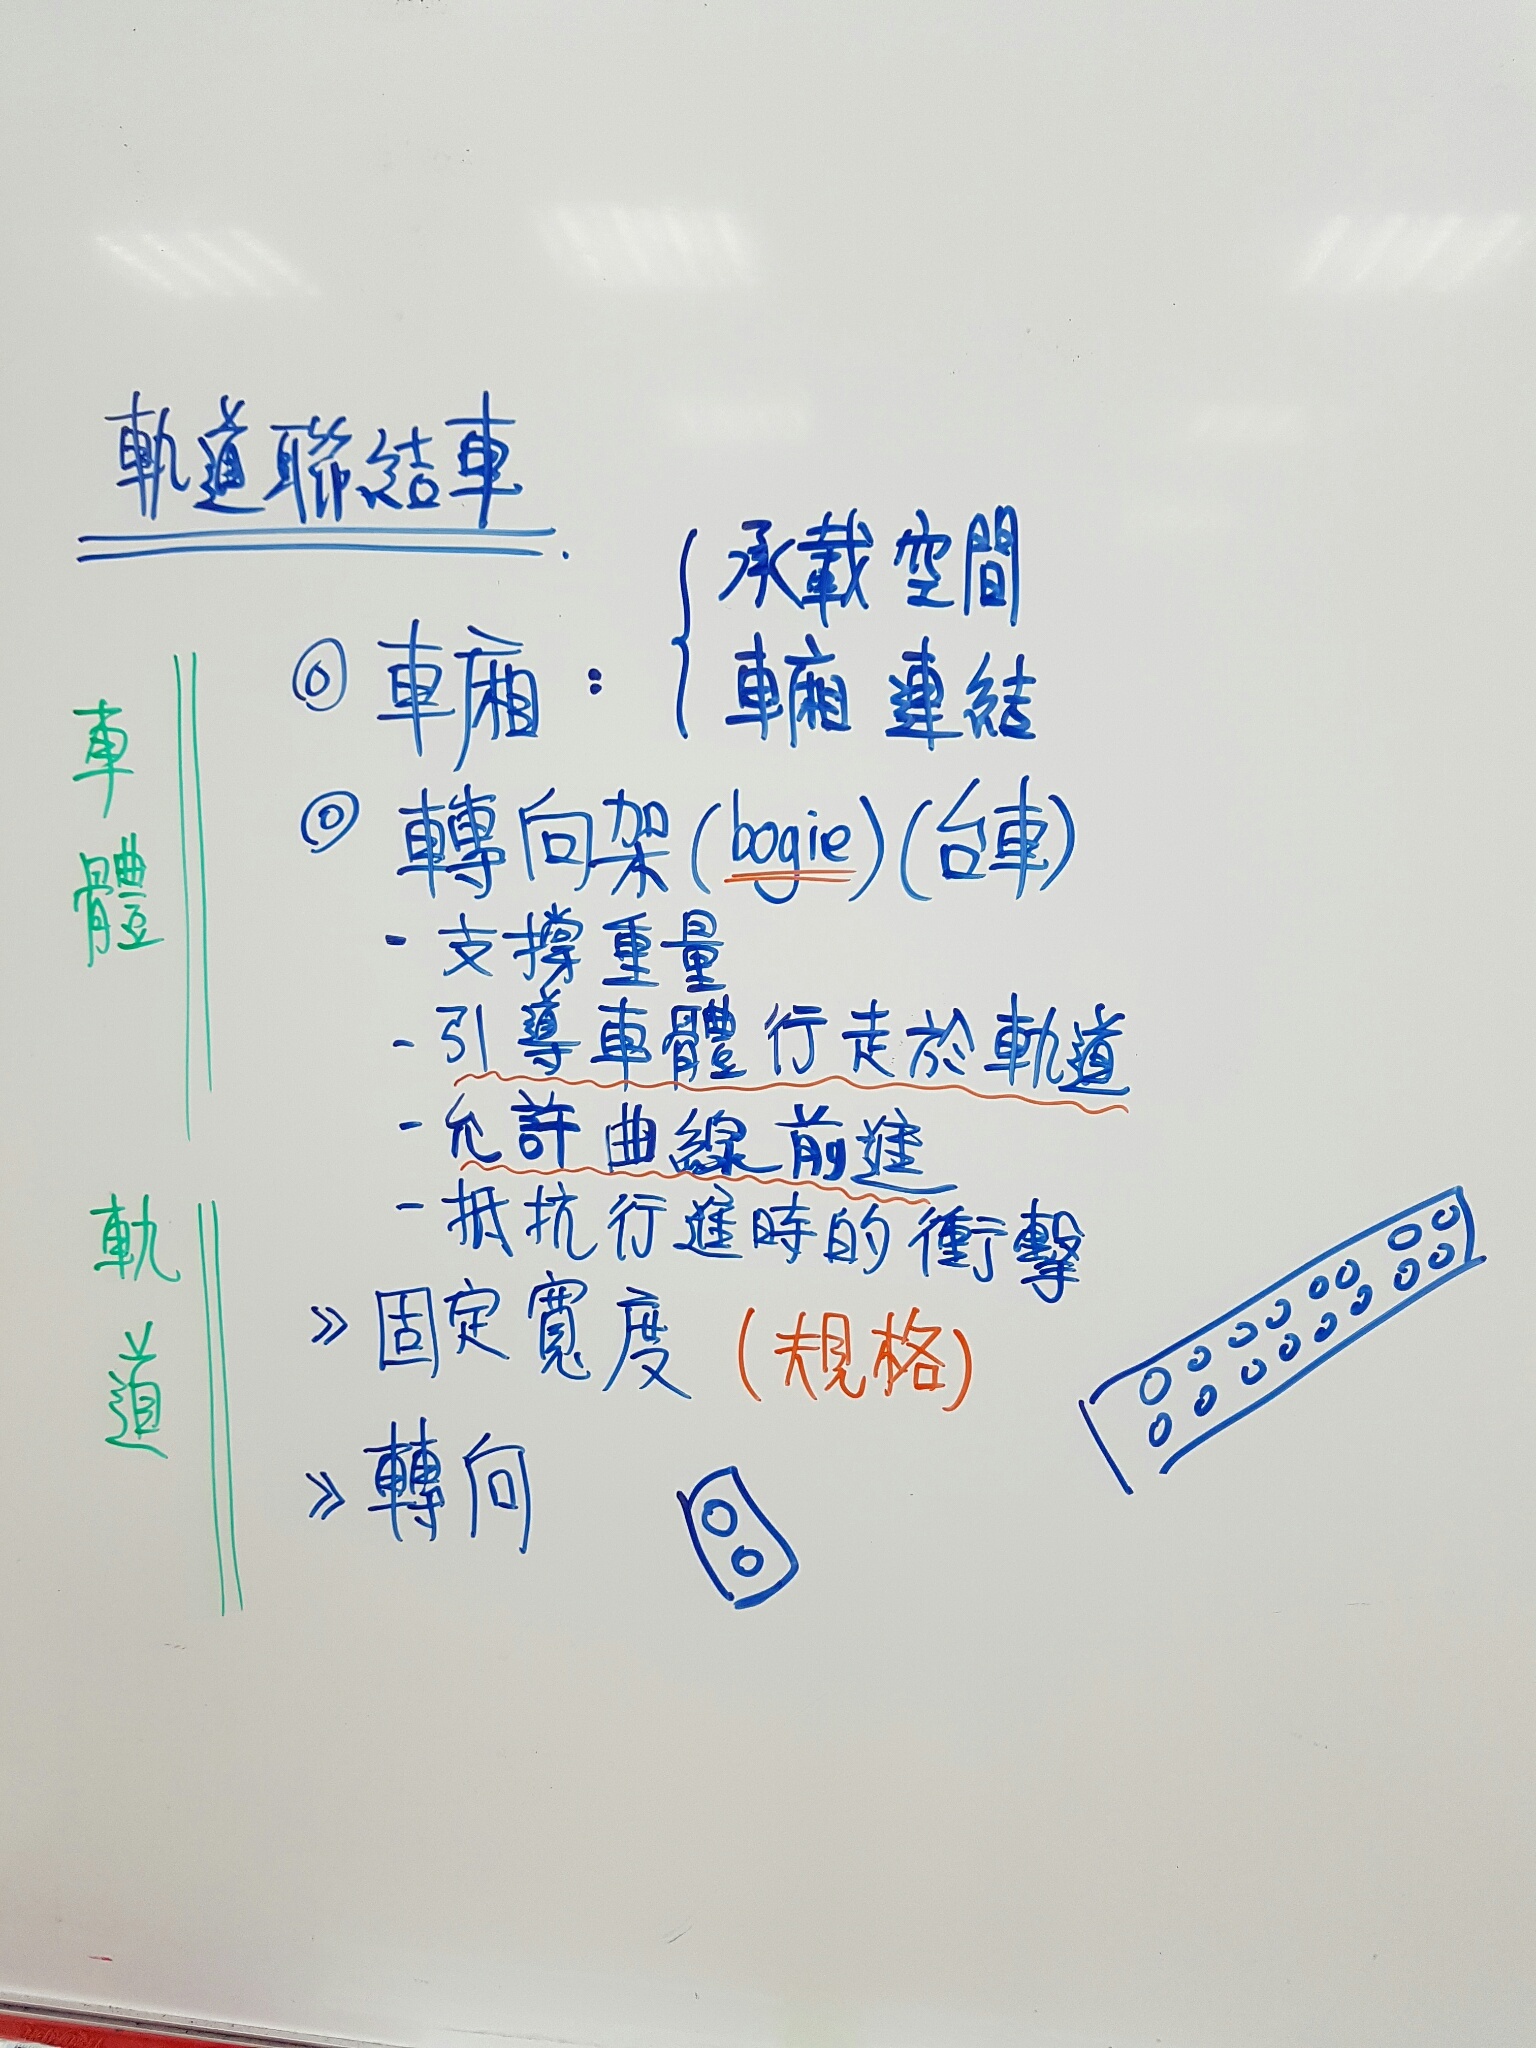 軌道聯結車
車體
◎ 車廂：
承載空間
車廂連結
◎ 轉向架(bogie)(台車)
- 支撐重量
- 引導車體行走於軌道
- 允許曲線前進
- 抵抗行進時的衝擊
軌道
» 固定寬度 (規格)
» 轉向